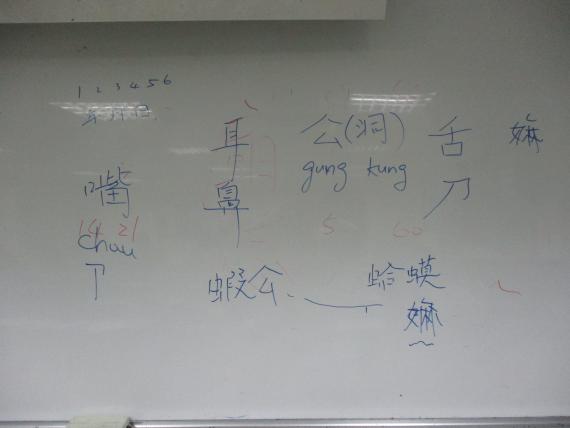 1 2 3 4 5 6
年月日
耳 公(洞) 舌 嫲
gung kung
嘴 鼻 刀
14 21 5 60
chau
蝦公 蛤蟆
嫲